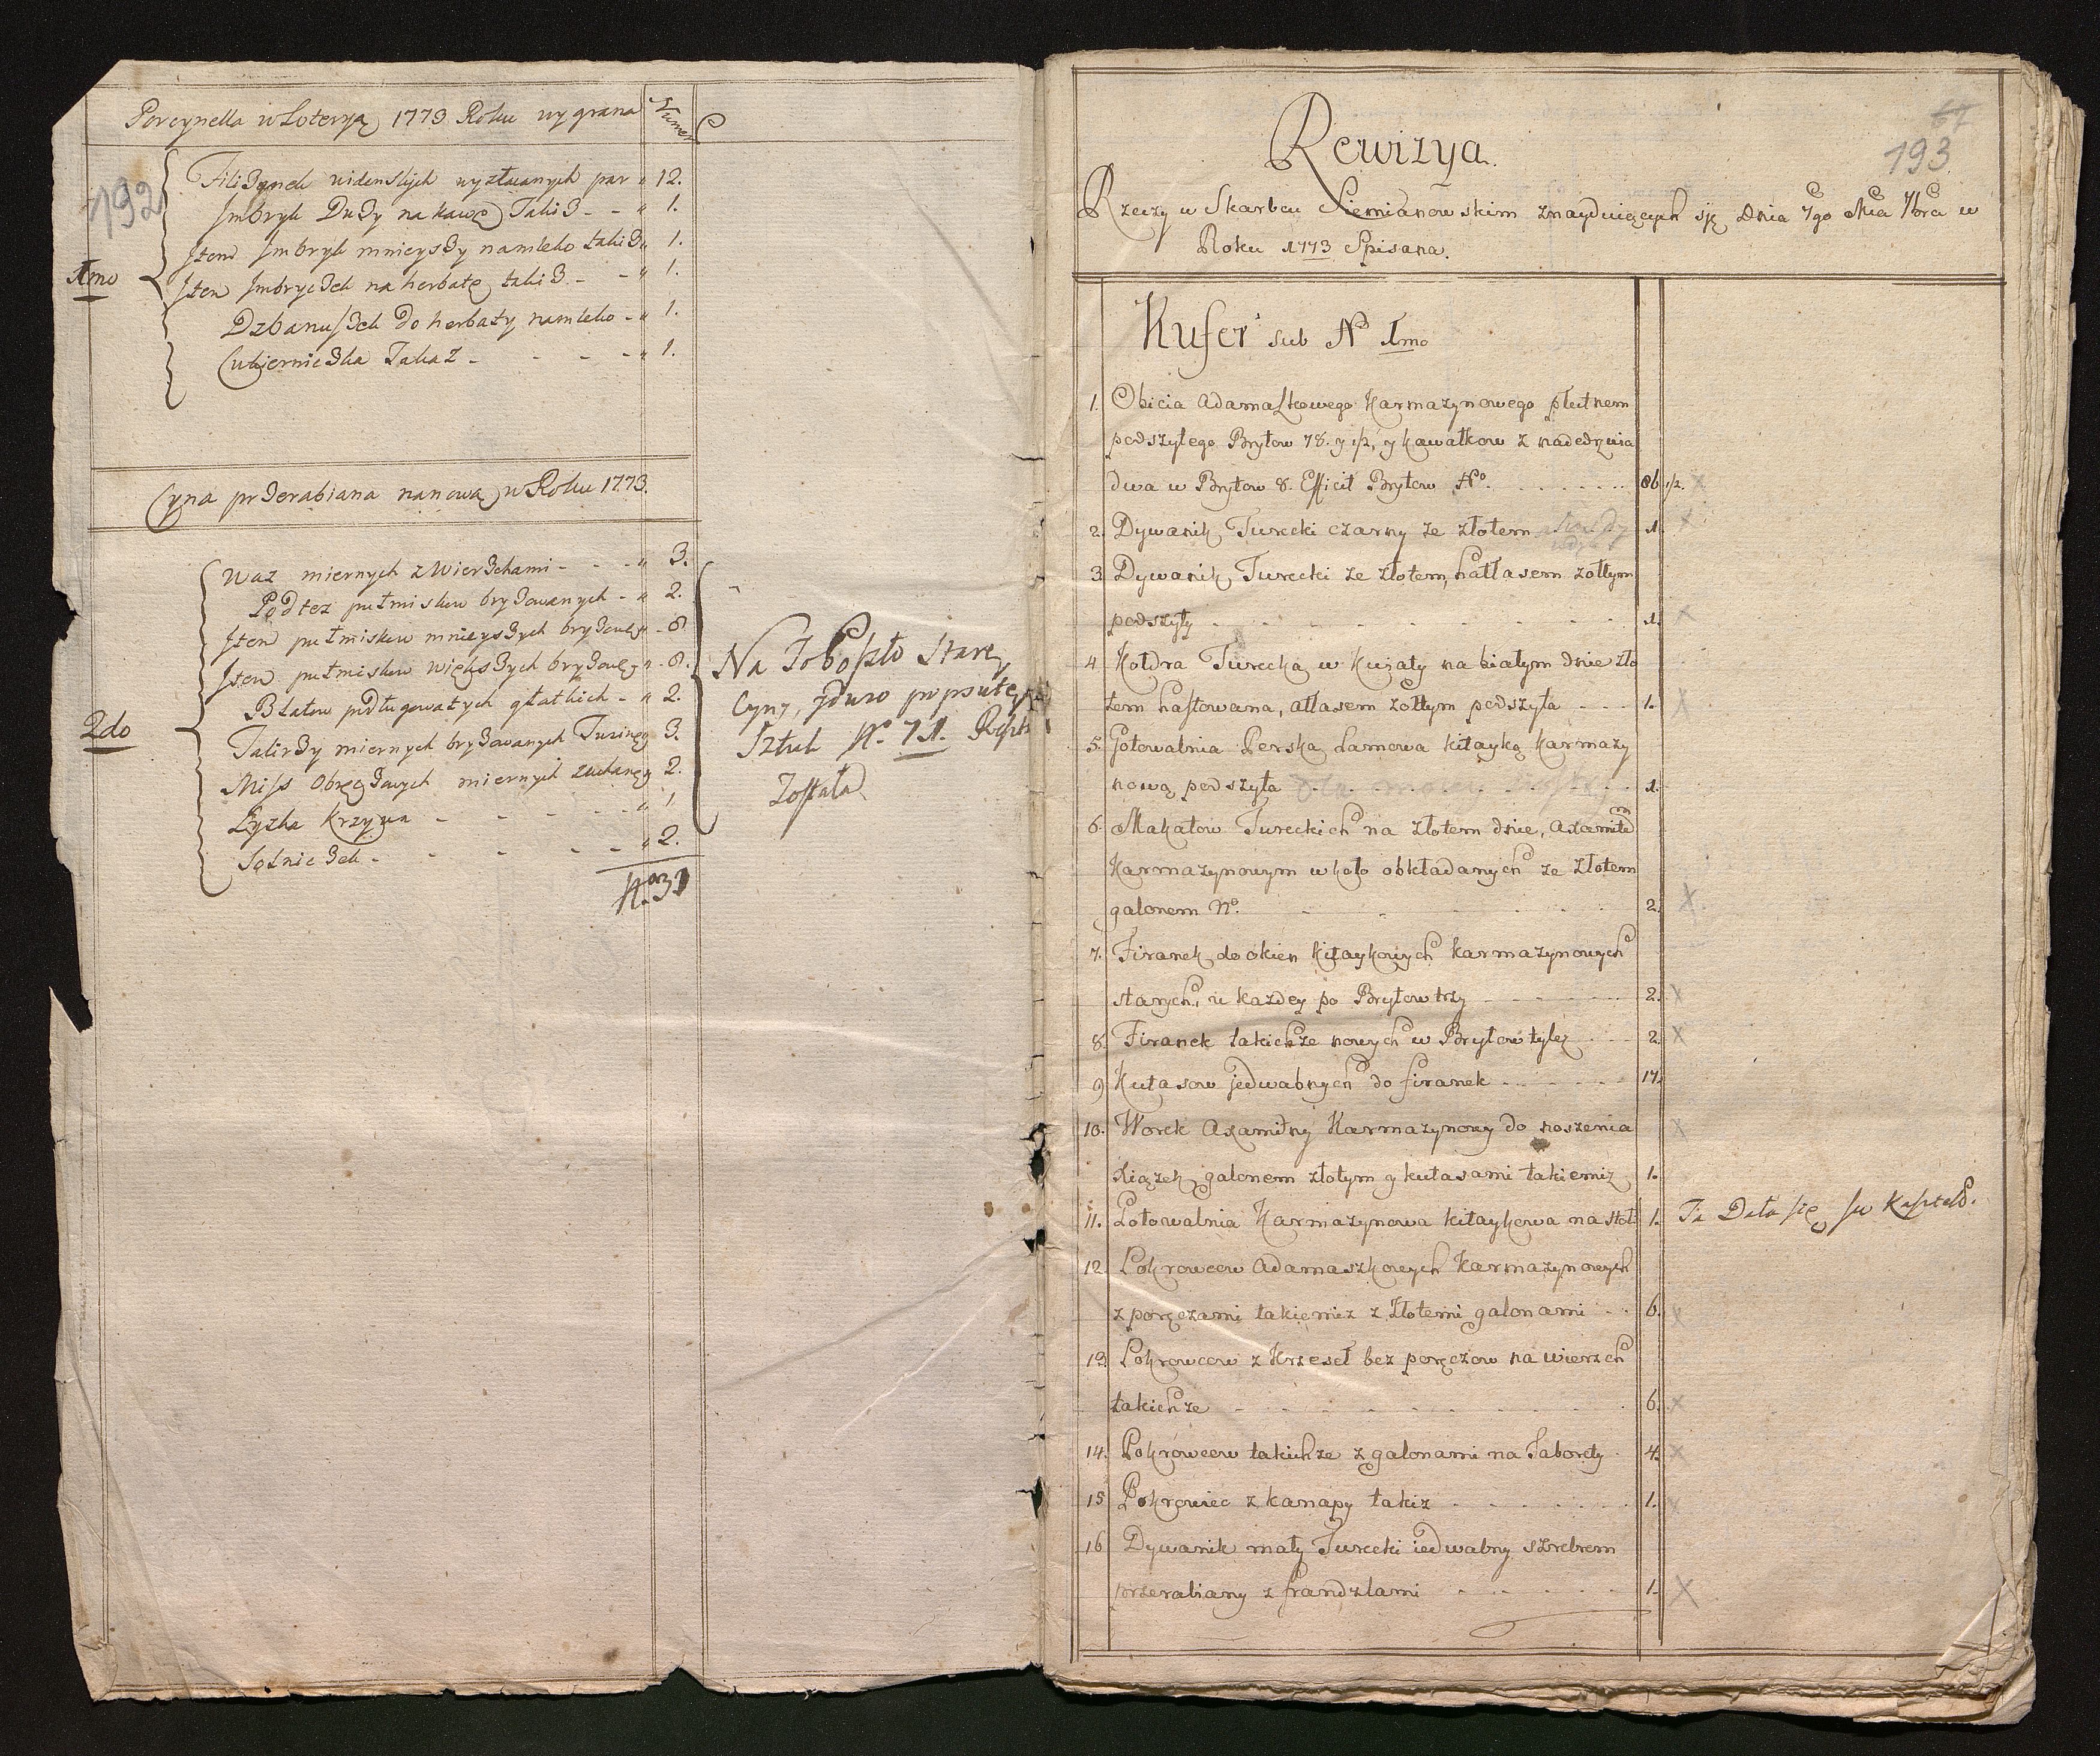 Porcynella w Loteryą 1773 Roku wygrana
Numer
192
1mo
Filiżanek widenskych wyzłacanych par " 12.
Jmbryk Duży na kawę Takiż - - " 1.
Jtem Jmbryk mnieyszy na mleko takiż " 1.
Jtem Jmbryczek na herbatę takiż - - " 1.
Dzbanuszek do herbaty na mleko - " 1.
Cukierniczka Takaż - - - - " 1.
Cyna przerabiana na nową w Roku 1773.
2do
Waz miernych z Wierzchami - - - " 3.
Podtez pułmiskow bryżowanych - " 2.
Jtem pułmiskow mnieyszych - 8
Jtem pułmiskow większych - 8.
Blatow podługowatych głatkich - " 2.
Talirzy miernych bryżowanych 3.
Miss miernych 2.
Łyzka Krzywa - - - - " 1
Solniczek - - - - " 2.
Na To poszło Starey
Cyny, popsutey
Sztuk No. 71.
Została
67
193
Rewizya.
Rzeczy w Skarbcu Siemianowskim znayduięcych się Dnia 7go Mca 7bra w
Roku 1773 Spisana.
Kufer sub No 1mo
1. Obicia Adamaszkowego Karmazynowego płutnem
podszytego Brytow 78. y 1/2, y kawałkow z nadedrzwia
dwa w Brytow 8. Efficit Brytow No. . . . . . . 86 1/2. x
2. Dywanik Turecki czarny ze złotem 1. x
3 Dywanik Turecki ze złotem, hatłasem zołtym
podszyty - - - - - - - 1. x
4 Kołdra Turecka w kwiaty na białym dnie zło
tem haftowana, atłasem zołtym podszyta - - - 1. x
5. Gotowalnia Perska Lamowa kitayką karmazy
nową podszyta 1.
6. Makatow Tureckich na złotem dnie, axamitem
Karmazynowym w koło obkładanych ze złotem
galonem No. - - - - 2. X.
7. Firanek do okien kitaykowych karmazynowych
starych, w kazdey po Brytow trzy - - - - 2. x
8. Firanek takichze nowych w Brytow tylez - - - 2. x
9 Kutasow jedwabnych do firanek - - - - - 17.
10. Worek Axamitny Karmazynowy do noszenia x
Xiązek, galonem złotym y kutasami takiemiz 1.
11. Gotowalnia Karmazynowa kitaykowa na stoł 1. Ta Dała się
12 Pokrowcow Adamaszkowych Karmazynowych
z poręczami takiemiz z złotemi galonami - - 6. x
13 Pokrowcow z Krzeseł bez poręczow na wierzch
takichze - - - - - - - 6. x
14. Pokrowcow takichze z galonami na Taborety 4. x
15 Pokrowiec z kanapy takiz - - - - - 1.
16 Dywanik mały Turecki iedwabny szrebrem
przerabiany z frandzlami - - - - - 1. X